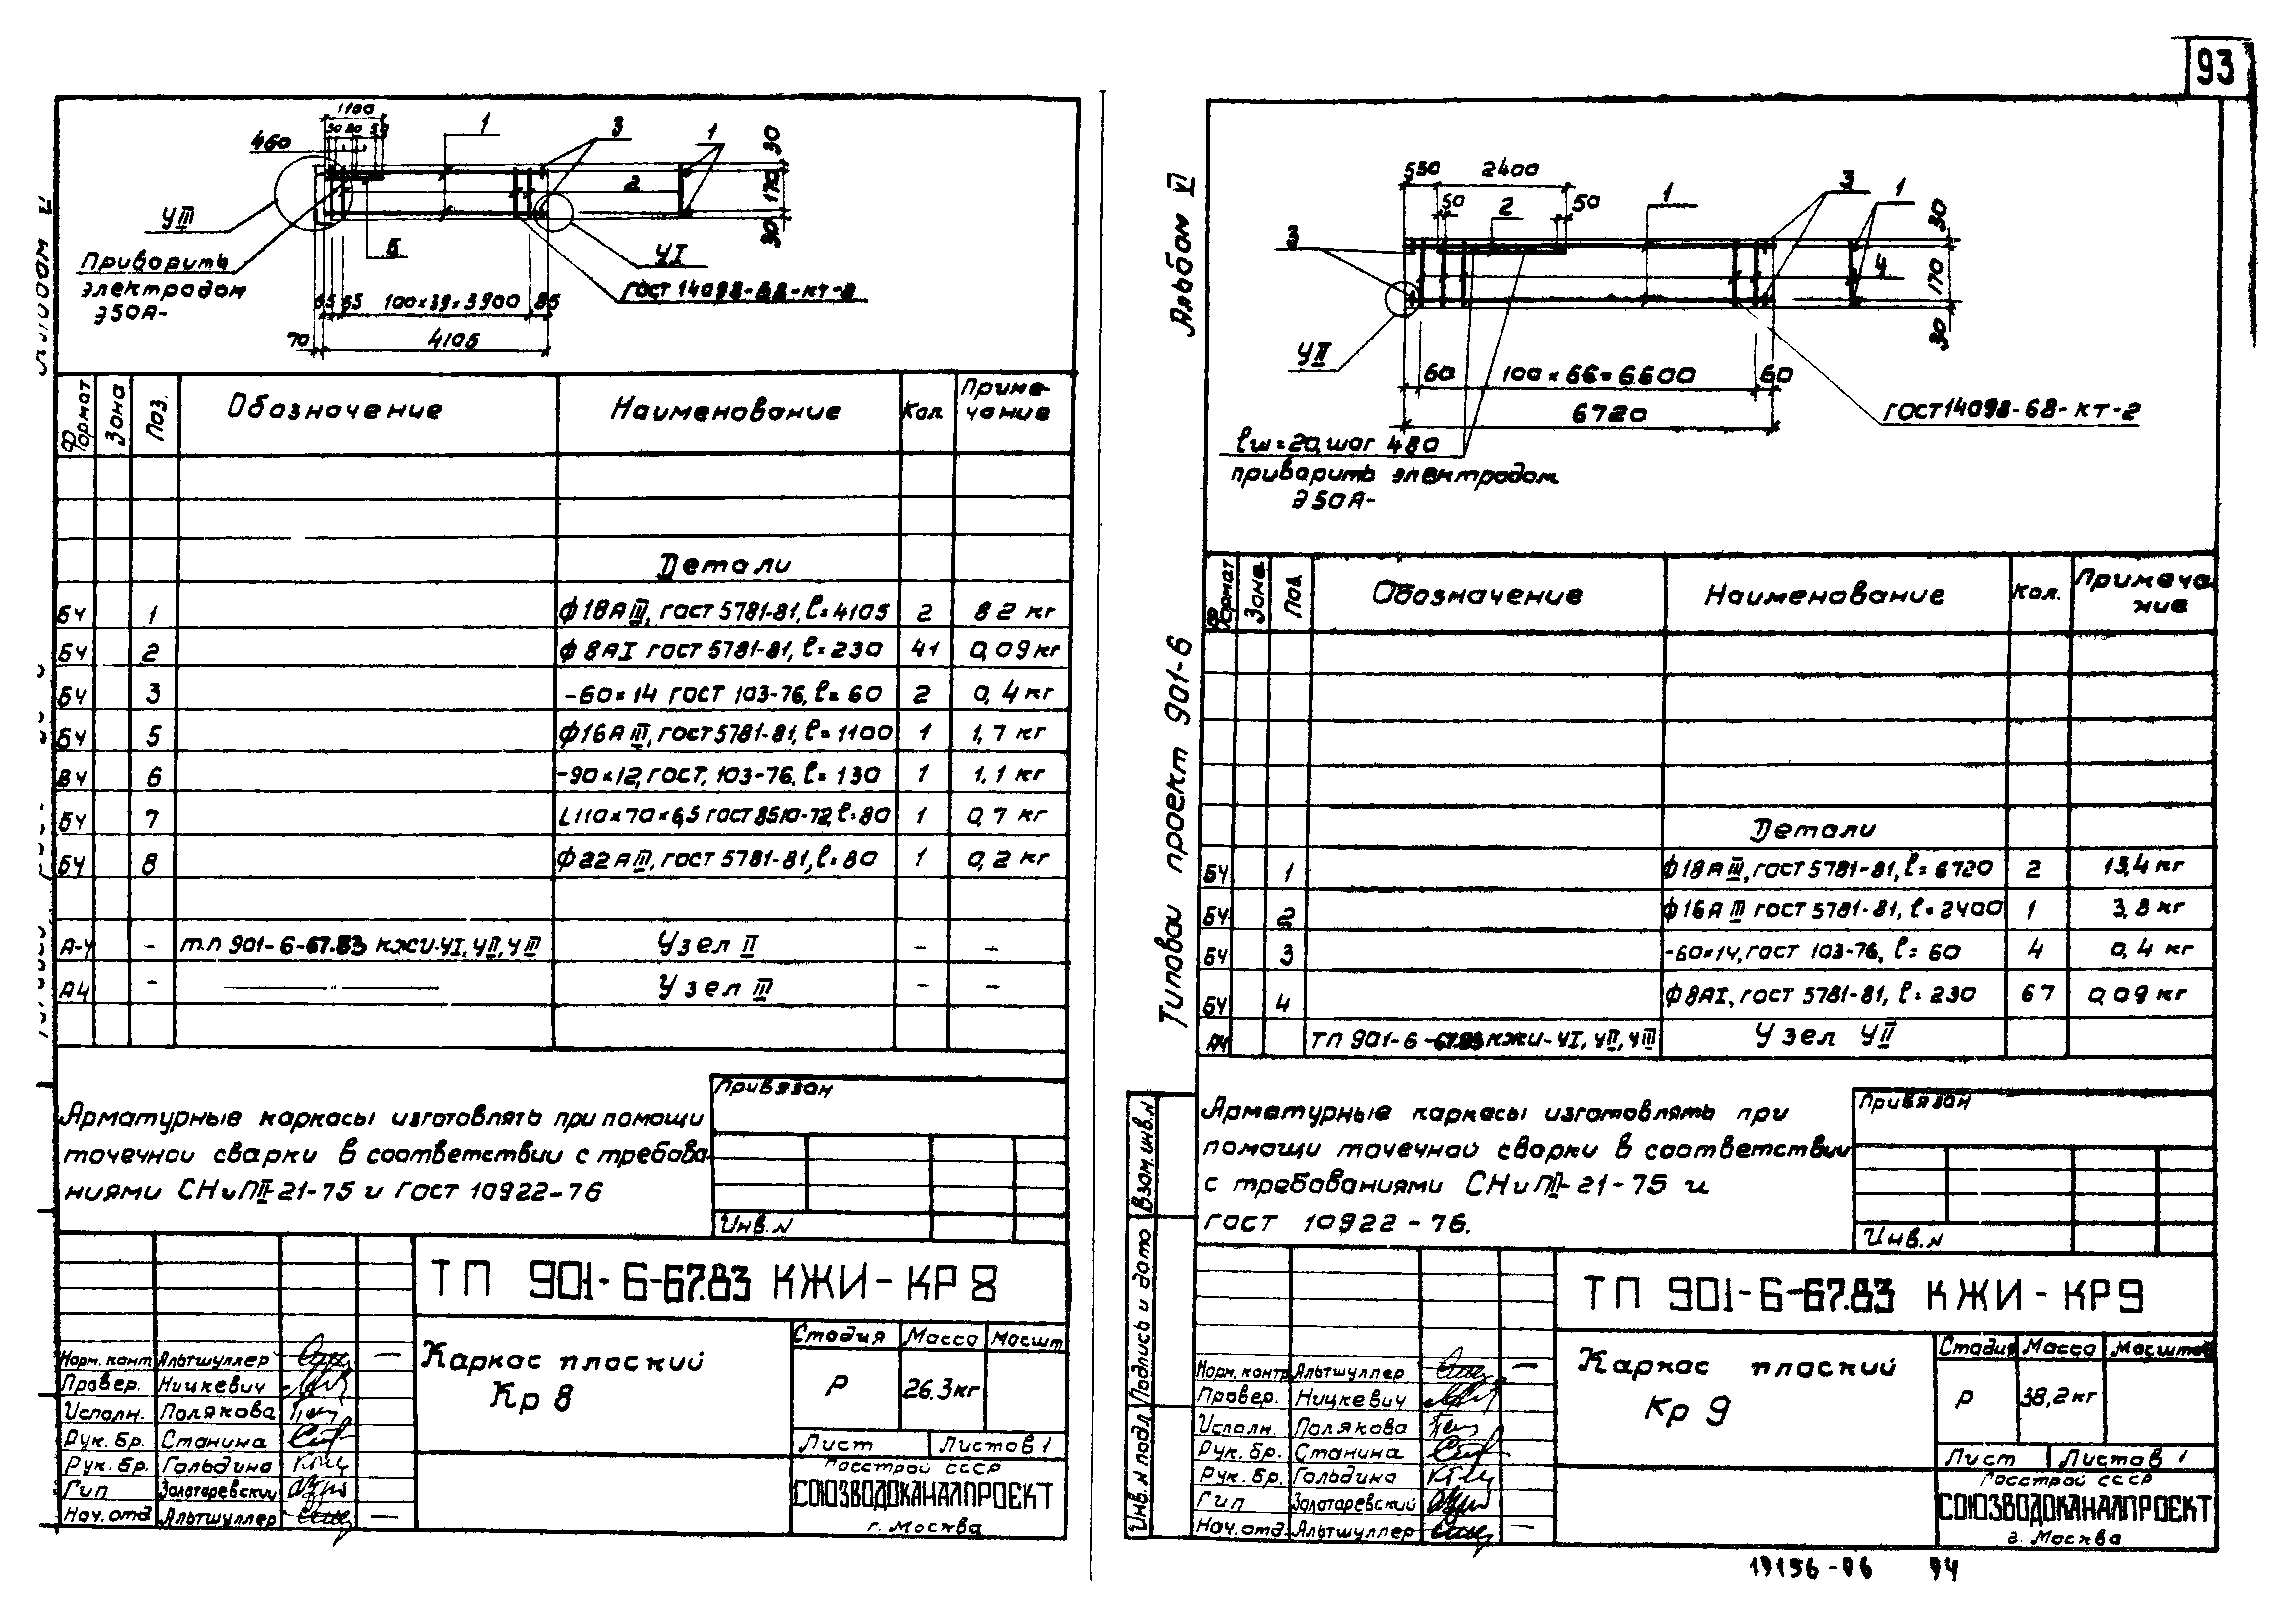 93
1100
50 80 50
460
1
3
1
30
170
30
2
УIII
5
УI
Приварить
электродом
Э50А-
ГОСТ 14098-68-КТ-2
65 65 100×39=3900 85
70
4105
Формат
Зона
Поз.
Обозначение
Наименование
Кол
Приме-
чание
Детали
БЧ 1 ф18АIII, ГОСТ 5781-81, ℓ=4105 2 8.2 кг
БЧ 2 ф8АI ГОСТ 5781-81, ℓ=230 41 0,09 кг
БЧ 3 -60×14 ГОСТ 103-76, ℓ=60 2 0,4 кг
БЧ 5 ф16АIII, ГОСТ 5781-81, ℓ=1100 1 1,7 кг
БЧ 6 -90×12, ГОСТ, 103-76, ℓ=130 1 1,1 кг
БЧ 7 L110×70×6,5 ГОСТ 8510-72, ℓ=80 1 0,7 кг
БЧ 8 ф22АIII, ГОСТ 5781-81, ℓ=80 1 0,2 кг
А-4 - т.п 901-6-67.83 КЖИ-УI, УII, УIII Узел II - -
А4 - —"— Узел III - -
Арматурные каркасы изготовлять при помощи
точечной сварки в соответствии с требова-
ниями СНиПIII-21-75 и ГОСТ 10922-76
Привязан
Инв.N
ТП 901-6-67.83 КЖИ-КР8
Каркас плоский
Кр 8
Стадия Масса Масшт
Р 26.3кг
Лист Листов 1
Госстрой СССР
СОЮЗВОДОКАНАЛПРОЕКТ
г. Москва
Норм. конт Альтшуллер —
Провер. Ницкевич
Исполн. Полякова
Рук. бр. Станина
Рук. бр. Гольдина
Гип Золотаревский
Нач. отд Альтшуллер —
Альбом VI
Типовой проект 901-6
550 2400
50 2 50
1
3
1
3
4
30
170
30
УII
60 100×66=6600 60
6720
ГОСТ 14098-68-КТ-2
ℓш=20, шаг 480
приварить электродом
Э50А-
Формат
Зона
Поз.
Обозначение
Наименование
Кол.
Примеча
ние
Детали
БЧ 1 ф18АIII, ГОСТ 5781-81, ℓ=6720 2 13,4 кг
БЧ 2 ф16АIII ГОСТ 5781-81, ℓ=2400 1 3,8 кг
БЧ 3 -60×14, ГОСТ 103-76, ℓ=60 4 0,4 кг
БЧ 4 ф8АI, ГОСТ 5781-81, ℓ=230 67 0,09 кг
А4 ТП 901-6-67.83 КЖИ-УI, УII, УIII Узел УII
Арматурные каркасы изготовлять при
помощи точечной сварки в соответствии
с требованиями СНиПIII-21-75 и
ГОСТ 10922-76.
Привязан
Инв.N
Взам. инв.N
Подпись и дата
Инв. N подл
ТП 901-6-67.83 КЖИ-КР9
Каркас плоский
Кр 9
Стадия Масса Масштаб
Р 38,2кг
Лист Листов 1
Госстрой СССР
СОЮЗВОДОКАНАЛПРОЕКТ
г. Москва
Норм. контр Альтшуллер —
Провер. Ницкевич
Исполн. Полякова
Рук. бр. Станина
Рук. бр. Гольдина
Гип Золотаревский
Нач. отд. Альтшуллер —
19156-06 94